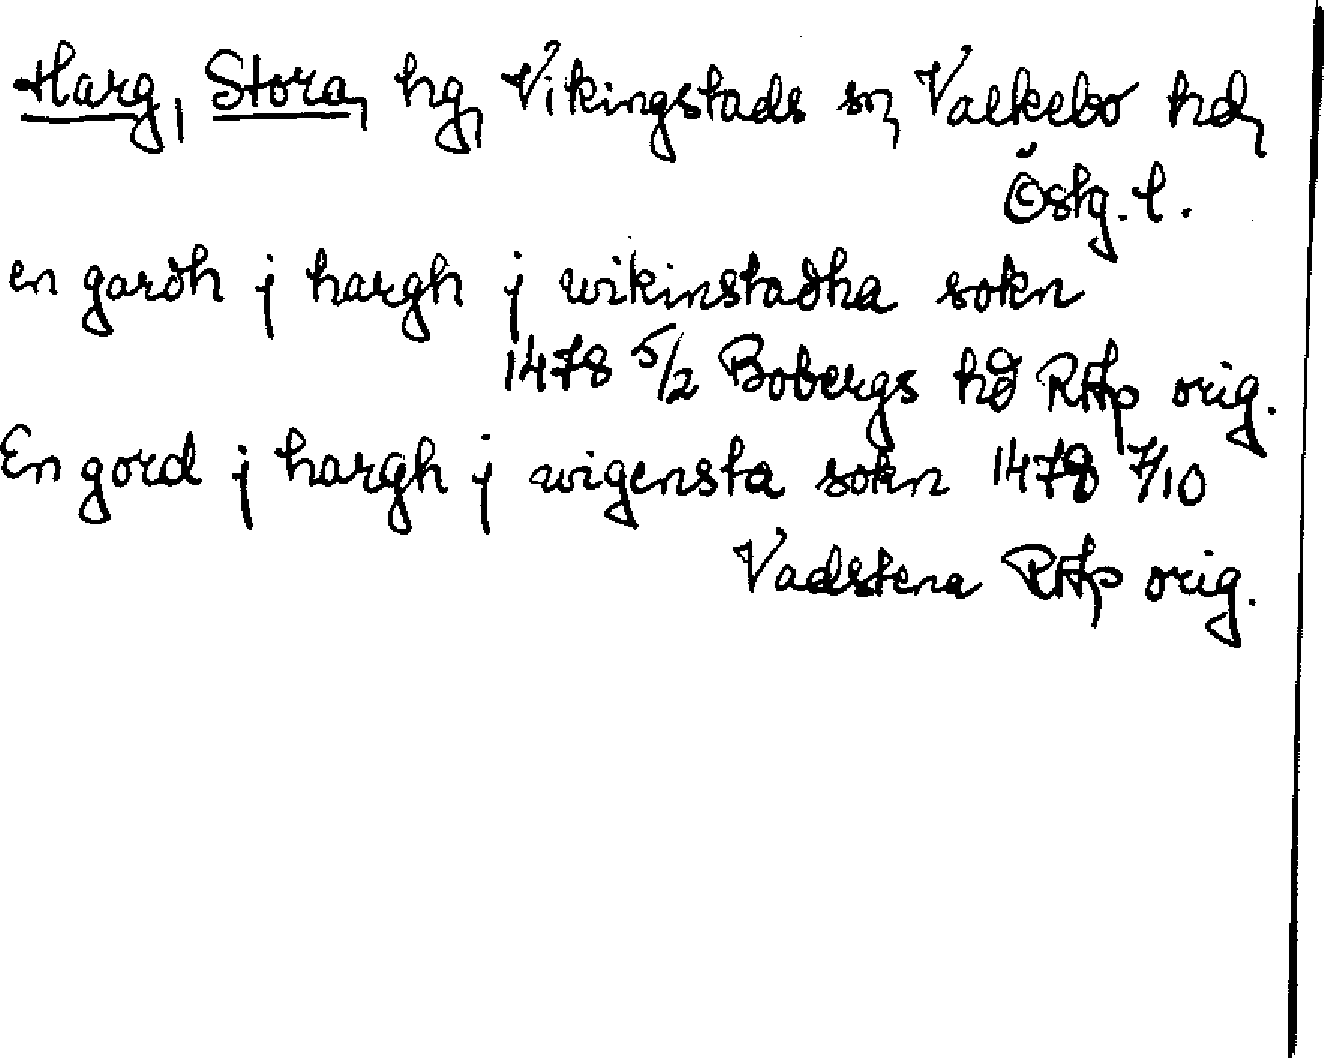 Harg, Stora, hg, Vikingstads sn, Valkebo hd,
Östg. l.
en gardh j hargh j wikinstadha sokn
1478 5/2 Bobergs hd RAp orig.
En gord j hargh j wigensta sokn 1478 7/10
Vadstena RAp orig.